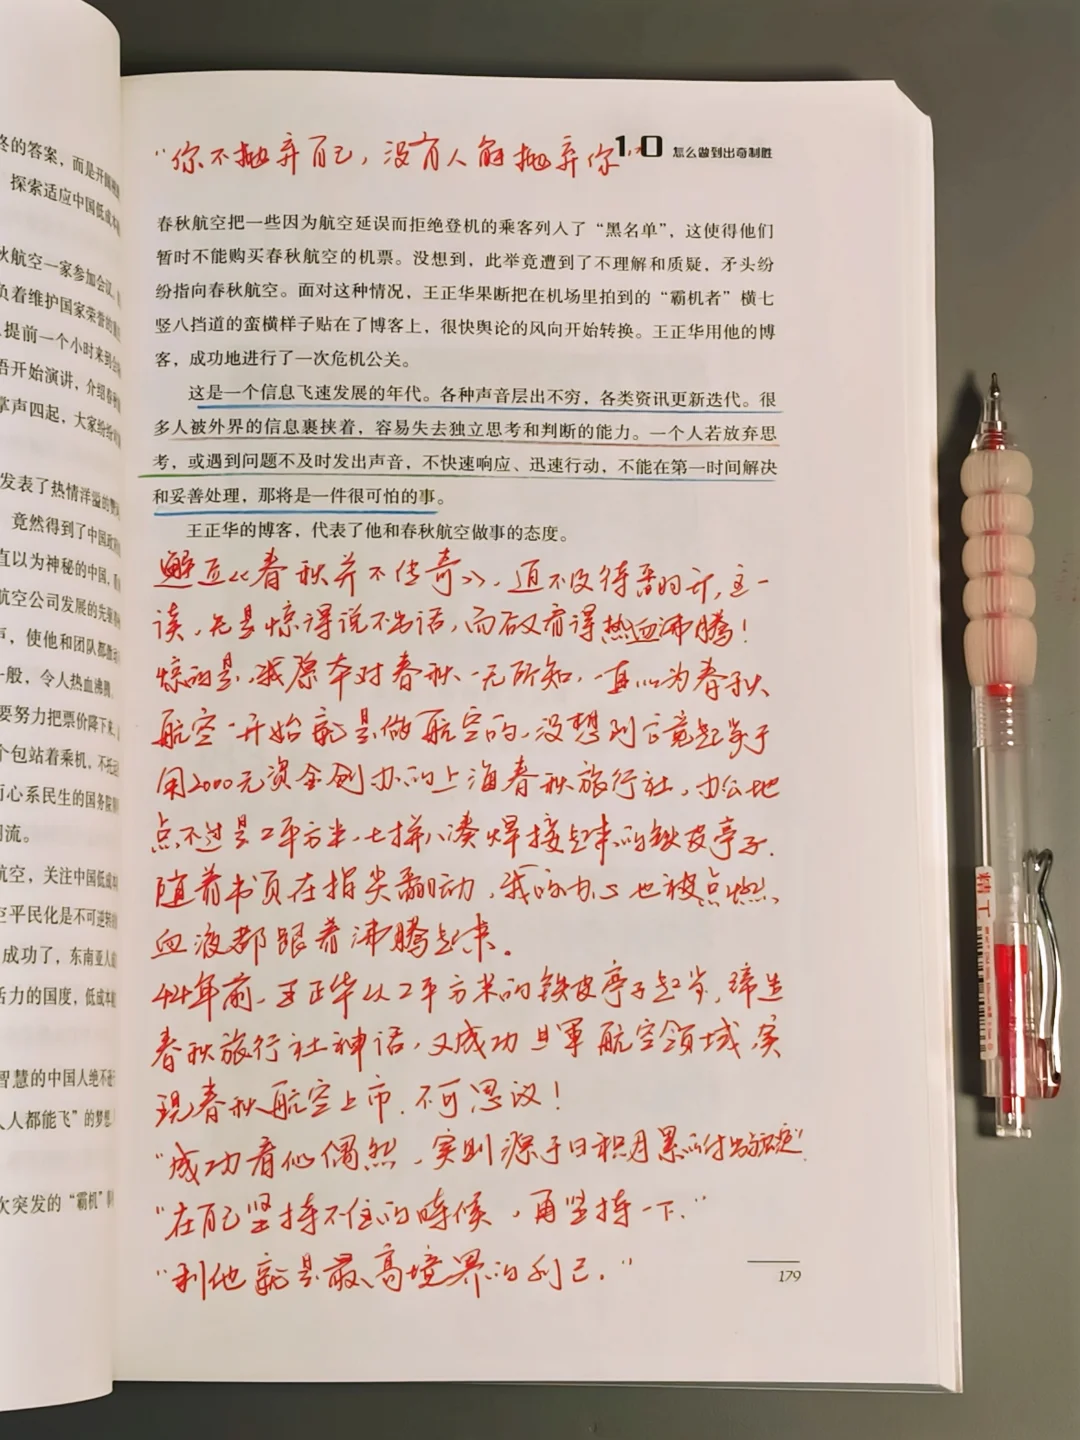 终的答案，而是开
探索适应中国低成本
秋航空一家参加会议，
负着维护国家荣誉的
提前一个小时来到会
语开始演讲，介绍春
掌声四起，大家纷纷
发表了热情洋溢的
竟然得到了中国政
直以为神秘的中国，
航空公司发展的先
声，使他和团队都
一般，令人热血沸腾。
要努力把票价降下来，
个包站着乘机，不托运
而心系民生的国务院
潮流。
航空，关注中国低成本
空平民化是不可逆转
成功了，东南亚人
活力的国度，低成本
智慧的中国人绝不
人人都能飞”的梦想，
次突发的“霸机”事
“你不抛弃自己，没有人能抛弃你”
10 怎么做到出奇制胜
春秋航空把一些因为航空延误而拒绝登机的乘客列入了“黑名单”，这使得他们
暂时不能购买春秋航空的机票。没想到，此举竟遭到了不理解和质疑，矛头纷
纷指向春秋航空。面对这种情况，王正华果断把在机场里拍到的“霸机者”横七
竖八挡道的蛮横样子贴在了博客上，很快舆论的风向开始转换。王正华用他的博
客，成功地进行了一次危机公关。
这是一个信息飞速发展的年代。各种声音层出不穷，各类资讯更新迭代。很
多人被外界的信息裹挟着，容易失去独立思考和判断的能力。一个人若放弃思
考，或遇到问题不及时发出声音，不快速响应、迅速行动，不能在第一时间解决
和妥善处理，那将是一件很可怕的事。
王正华的博客，代表了他和春秋航空做事的态度。
邂逅《春秋并不传奇》，迫不及待翻开，
读，先是惊得说不出话，而后又看得热血沸腾！
惊的是，我原本对春秋一无所知，一直以为春秋
航空一开始就是做航空的，没想到它竟起步于
用2000元资金创办的上海春秋旅行社，办公地
点不过是2平方米、七拼八凑焊接起来的铁皮亭子。
随着书页在指尖翻动，我的内心也被点燃，
血液都跟着沸腾起来。
44年前，王正华从2平方米的铁皮亭子起步，缔造
春秋旅行社神话，又成功进军航空领域，实
现春秋航空上市，不可思议！
“成功看似偶然，实则源于日积月累的付出与沉淀”！
“在自己坚持不住的时候，再坚持一下。”
“利他就是最高境界的利己。”
179
精工